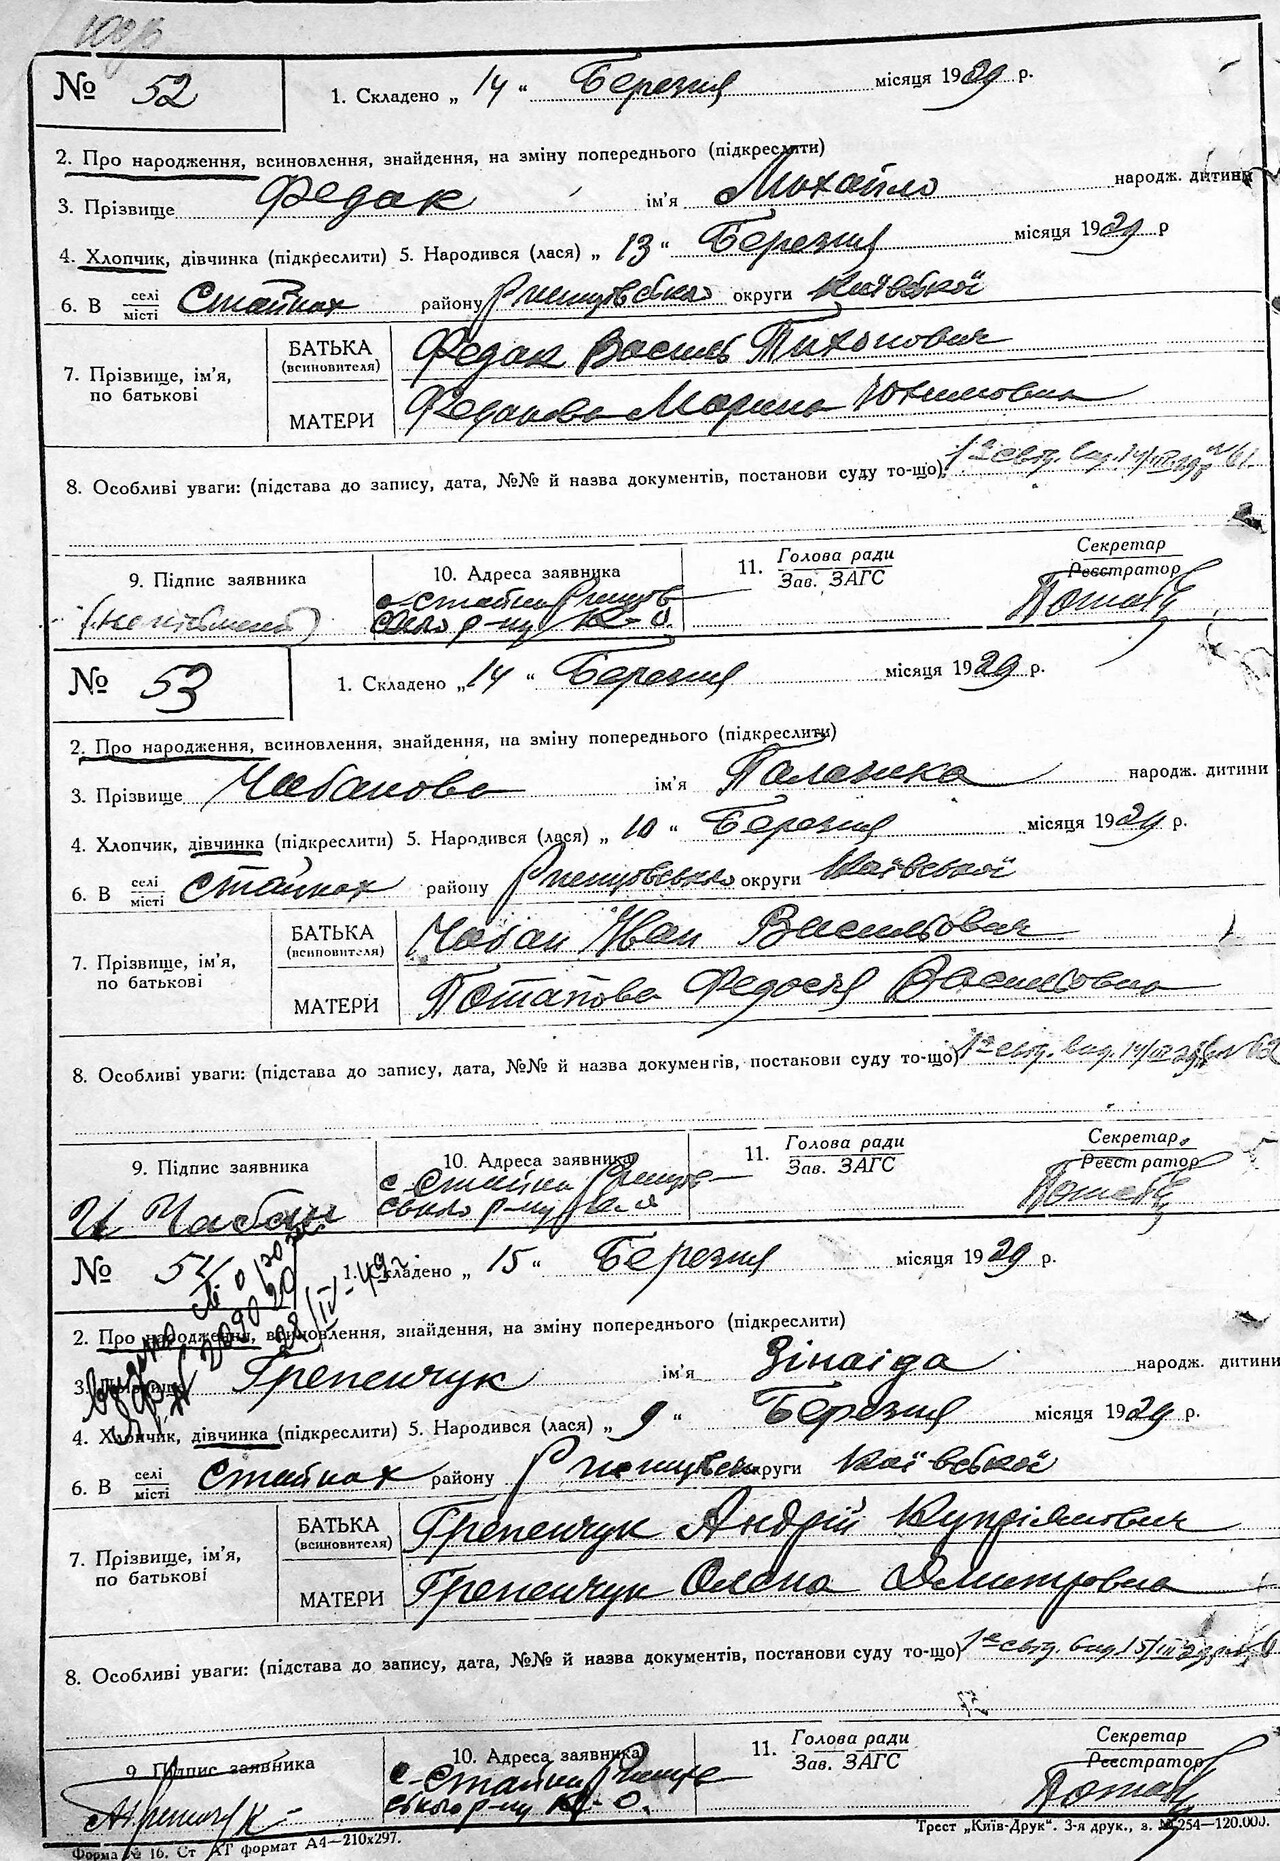 № 52
1. Складено „ 14 “ Березня місяця 1929 р.
2. Про народження, всиновлення, знайдення, на зміну попереднього (підкреслити)
3. Прізвище Федак ім'я Михайло народж. дитини
4. Хлопчик, дівчинка (підкреслити) 5. Народився (лася) „ 13 “ Березня місяця 1929 р
6. В селі місті Стайках району Ржищівсько округи Київської
7. Прізвище, ім'я, по батькові
БАТЬКА (всиновителя) Федак Василь Тихонович
МАТЕРИ Федакова Марина Юхимовна
8. Особливі уваги: (підстава до запису, дата, №№ й назва документів, постанови суду то-що) 61
9. Підпис заявника
(неписьмений)
10. Адреса заявника
с. Стайки Ржищів
ського р-ну К-О.
11. Голова ради
Зав. ЗАГС
Секретар
Реєстратор
№ 53
1. Складено „ 14 “ Березня місяця 1929 р.
2. Про народження, всиновлення, знайдення, на зміну попереднього (підкреслити)
3. Прізвище Чабанова ім'я Палажка народж. дитини
4. Хлопчик, дівчинка (підкреслити) 5. Народився (лася) „ 10 “ Березня місяця 1929 р.
6. В селі місті Стайках району Ржищівсько округи Київської
7. Прізвище, ім'я, по батькові
БАТЬКА (всиновителя) Чабан Иван Васильович
МАТЕРИ Потапова Федосія Васильовна
8. Особливі уваги: (підстава до запису, дата, №№ й назва документів, постанови суду то-що) 62
9. Підпис заявника
И Чабан
10. Адреса заявника
с. Стайки Ржищів
ського р-ну К-О
11. Голова ради
Зав. ЗАГС
Секретар
Реєстратор
№ 54
1. Складено „ 15 “ Березня місяця 1929 р.
2. Про народження, всиновлення, знайдення, на зміну попереднього (підкреслити)
3. Прізвище Грепенчук ім'я Зінаіда народж. дитини
4. Хлопчик, дівчинка (підкреслити) 5. Народився (лася) „ 9 “ Березня місяця 1929 р.
6. В селі місті Стайках району округи Київської
7. Прізвище, ім'я, по батькові
БАТЬКА (всиновителя) Грепенчук Андрій Купріянович
МАТЕРИ Грепенчук Олена Дмитровна
8. Особливі уваги: (підстава до запису, дата, №№ й назва документів, постанови суду то-що)
9. Підпис заявника
10. Адреса заявника
с. Стайки Ржищів
ського р-ну К-О.
11. Голова ради
Зав. ЗАГС
Секретар
Реєстратор
Форма № 16. Ст АТ формат А4—210х297.
Трест „Київ-Друк“. 3-я друк., з. № 254—120.000.